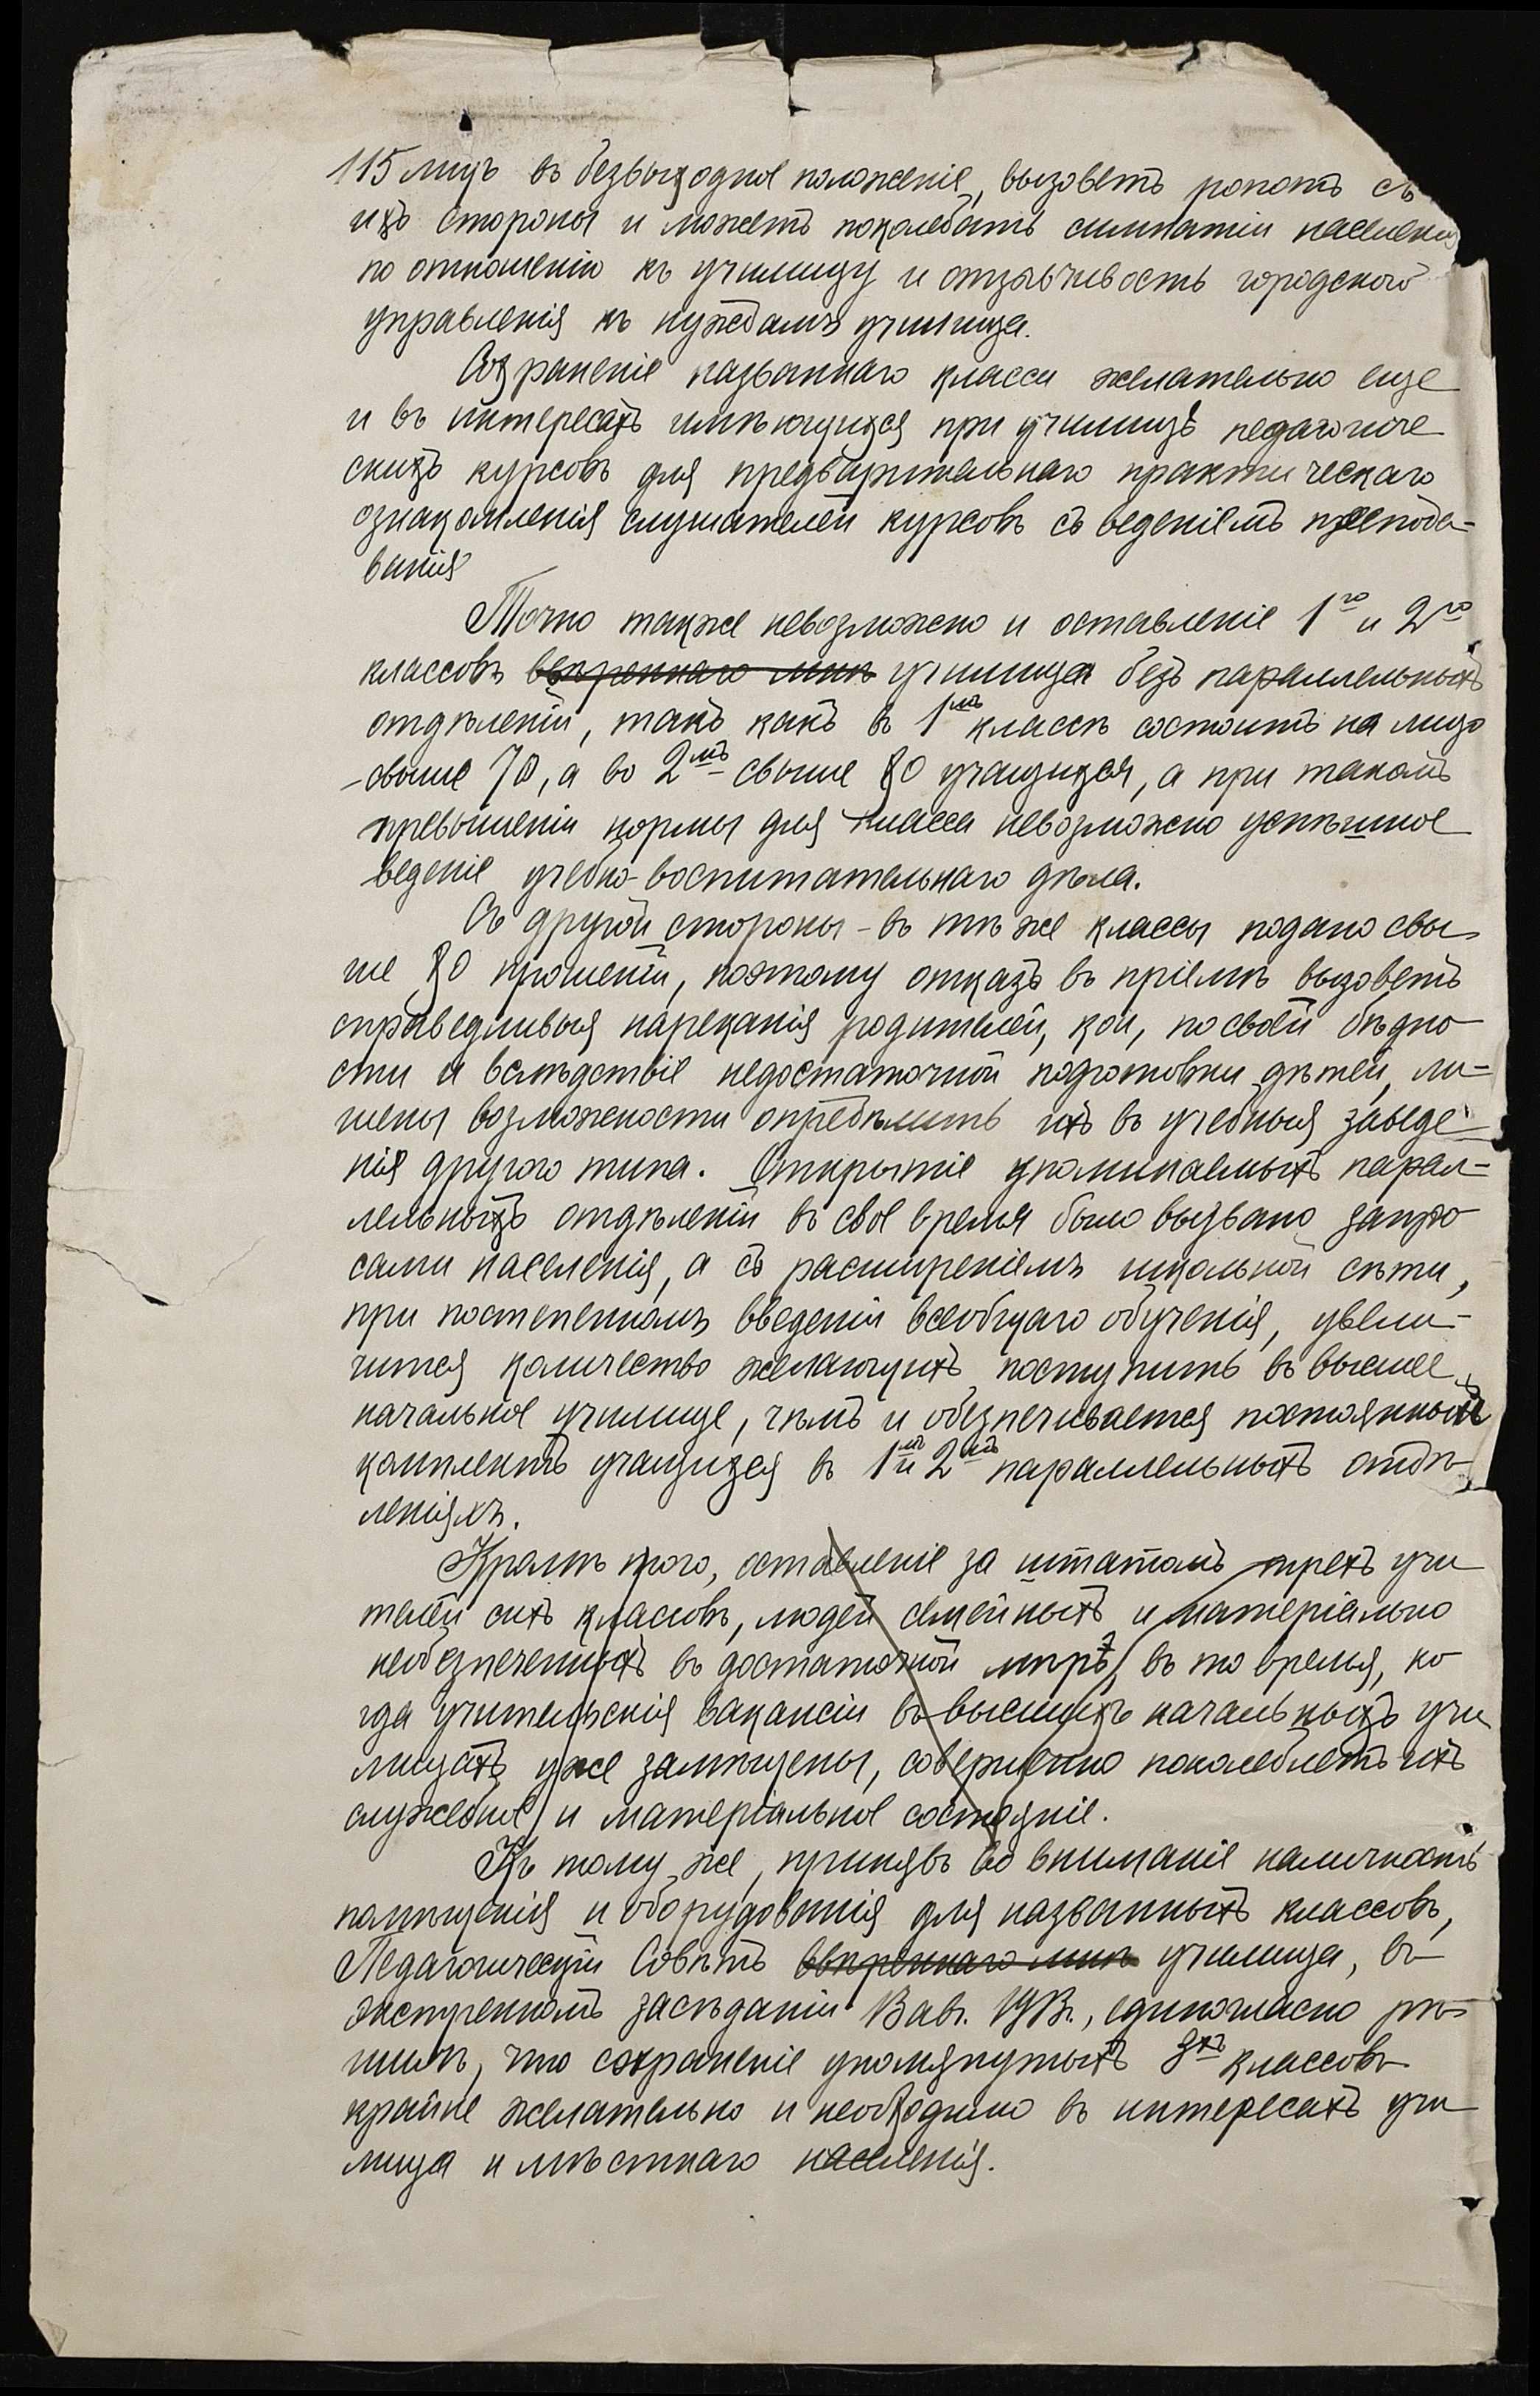 115 лицъ въ безвыходное положеніе, вызоветъ ропотъ съ
ихъ стороны и можетъ поколебать симпатіи населенія
по отношенію къ училищу и отзывчивость городского
управленія къ нуждамъ училища.
Сохраненіе названнаго класса желательно еще
и въ интересахъ имѣющихся при училищѣ педагогиче
скихъ курсовъ для предварительнаго практическаго
ознакомленія слушателей курсовъ съ веденіемъ препода-
ванія
Точно также невозможно и оставленіе 1го и 2го
классовъ ввѣреннаго мнѣ училища безъ параллельныхъ
отдѣленій, такъ какъ въ 1мъ классѣ состоитъ на лицо
свыше 70, а во 2мъ свыше 80 учащихся, а при такомъ
превышеніи нормы для класса невозможно успѣшное
веденіе учебно-воспитательнаго дѣла.
Съ другой стороны - въ тѣ же классы подано свы-
ше 80 прошеній, поэтому отказъ въ пріемѣ вызоветъ
справедливыя нареканія родителей, кои, по своей бѣдно
сти и вслѣдствіе недостаточной подготовки дѣтей, ли-
шены возможности опредѣлить ихъ въ учебныя заведе-
нія другого типа. Открытіе упоминаемыхъ парал-
лельныхъ отдѣленій въ свое время было вызвано запро
сами населенія, а съ расширеніемъ школьной сѣти,
при постепенномъ введеніи всеобщаго обученія, увели-
чится количество желающихъ поступить въ высшее
начальное училище, чѣмъ и обезпечивается постоянный
комплектъ учащихся въ 1мъ и 2мъ параллельныхъ отдѣ-
леніяхъ.
Кромѣ того, оставленіе за штатомъ трехъ учи
телей сихъ классовъ, людей семейныхъ и матеріально
необезпеченныхъ въ достаточной мѣрѣ, въ то время, ко
гда учительскія вакансіи въ высшихъ начальныхъ учи
лищахъ уже замѣщены, совершенно поколеблетъ ихъ
служебное и матеріальное состояніе.
Къ тому же, принявъ во вниманіе наличность
помѣщенія и оборудованія для названныхъ классовъ,
Педагогическій Совѣтъ ввѣреннаго мнѣ училища, въ
экстренномъ засѣданіи 13 авг. 1913г., единогласно рѣ-
шилъ, что сохраненіе упомянутыхъ 3хъ классовъ
крайне желательно и необходимо въ интересахъ учи
лища и мѣстнаго населенія.